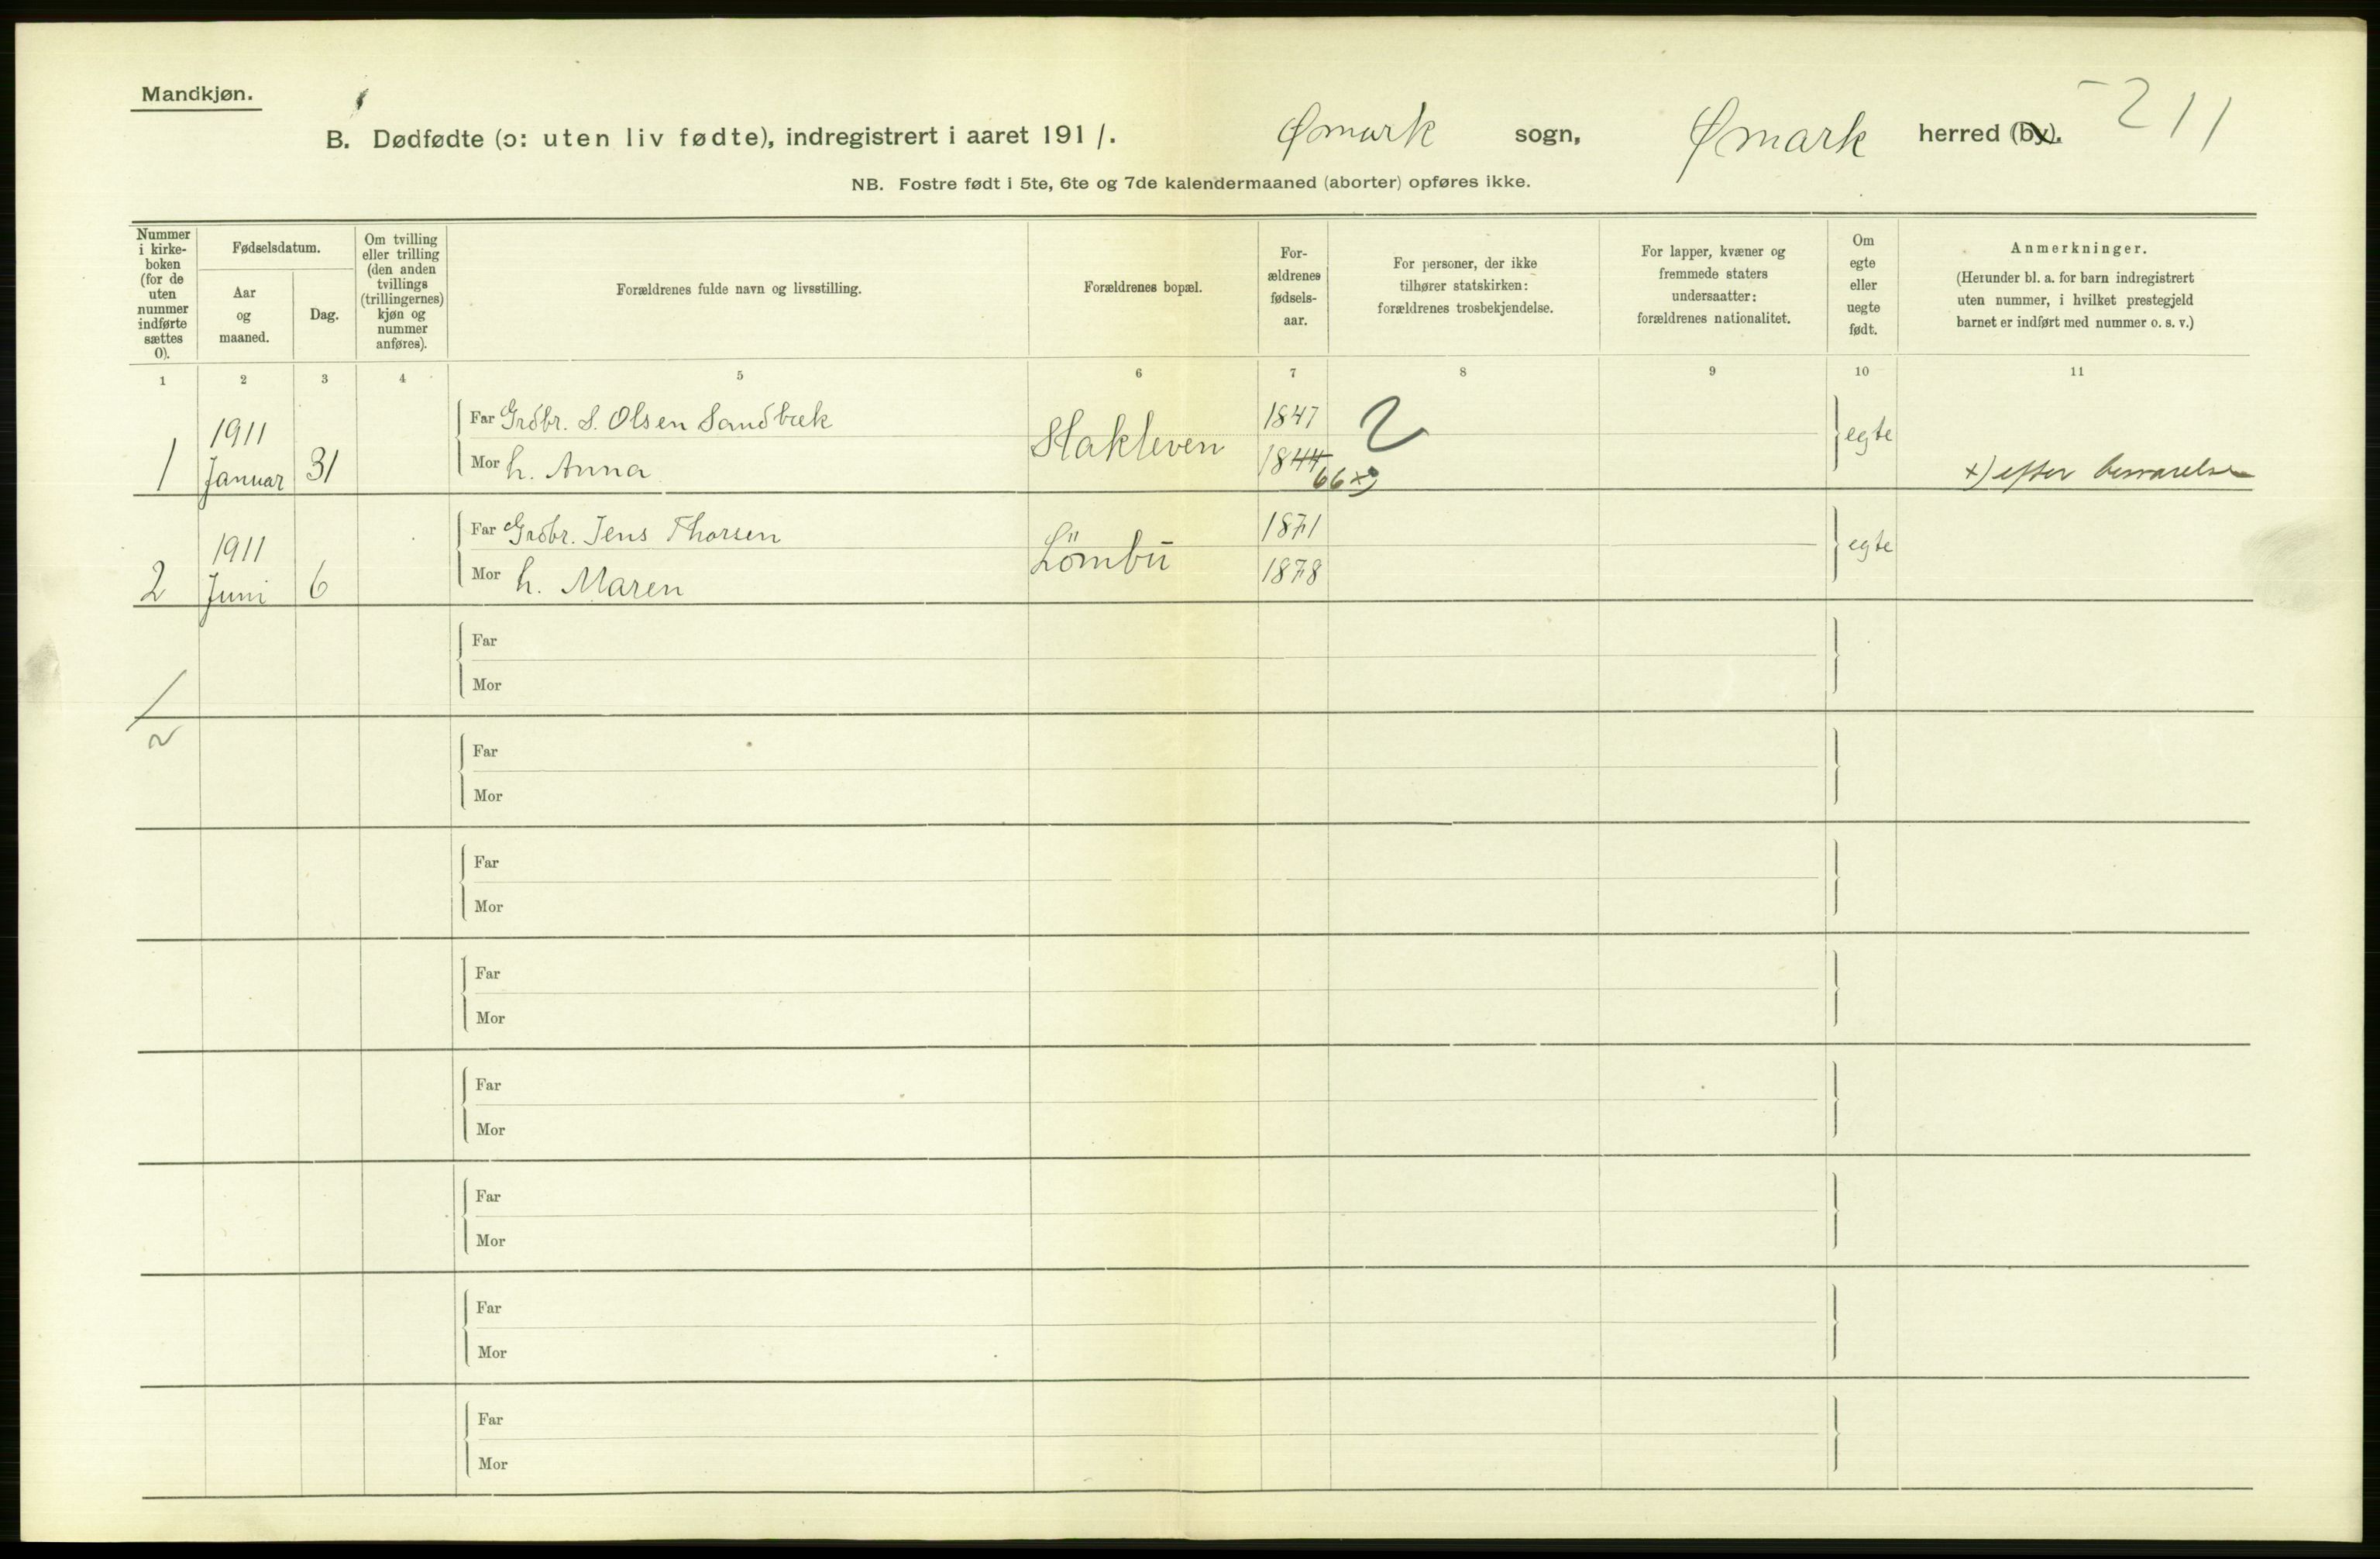 Mandkjøn.
211
B. Dødfødte (ɔ: uten liv fødte), indregistrert i aaret 1911. Ømark sogn, Ømark herred (by).
NB. Fostre født i 5te, 6te og 7de kalendermaaned (aborter) opføres ikke.
Nummer i kirke-boken (for de uten nummer indførte sættes 0).
Fødselsdatum.
Aar og maaned.
Dag.
Om tvilling eller trilling (den anden tvillings (trillingernes) kjøn og nummer anføres).
Forældrenes fulde navn og livsstilling.
Forældrenes bopæl.
For-ældrenes fødsels-aar.
For personer, der ikke tilhører statskirken: forældrenes trosbekjendelse.
For lapper, kvæner og fremmede staters undersaatter: forældrenes nationalitet.
Om egte eller uegte født.
Anmerkninger.
(Herunder bl. a. for barn indregistrert uten nummer, i hvilket prestegjeld barnet er indført med nummer o. s. v.)
1 2 3 4 5 6 7 8 9 10 11
1 1911 Januar 31
Far Grdbr. S. Olsen Sandbæk
Mor h. Anna
Slakleven 1847 1844 66 x) 2 egte
x) efter besvarelse
2 1911 Juni 6
Far Grdbr. Jens Thorsen
Mor h. Maren
Lömbu 1871 1878 egte
Far
Mor
2
Far
Mor
Far
Mor
Far
Mor
Far
Mor
Far
Mor
Far
Mor
Far
Mor